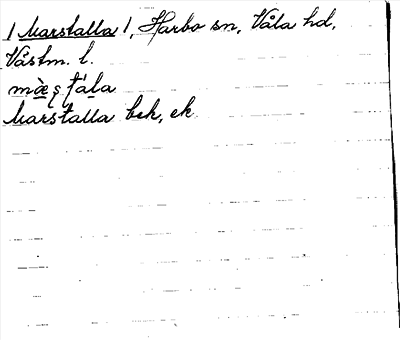 /Marstalla/, Harbo sn, Våla hd,
Västm. l.
mæ̀ʂtála
Marstalla bek, ek